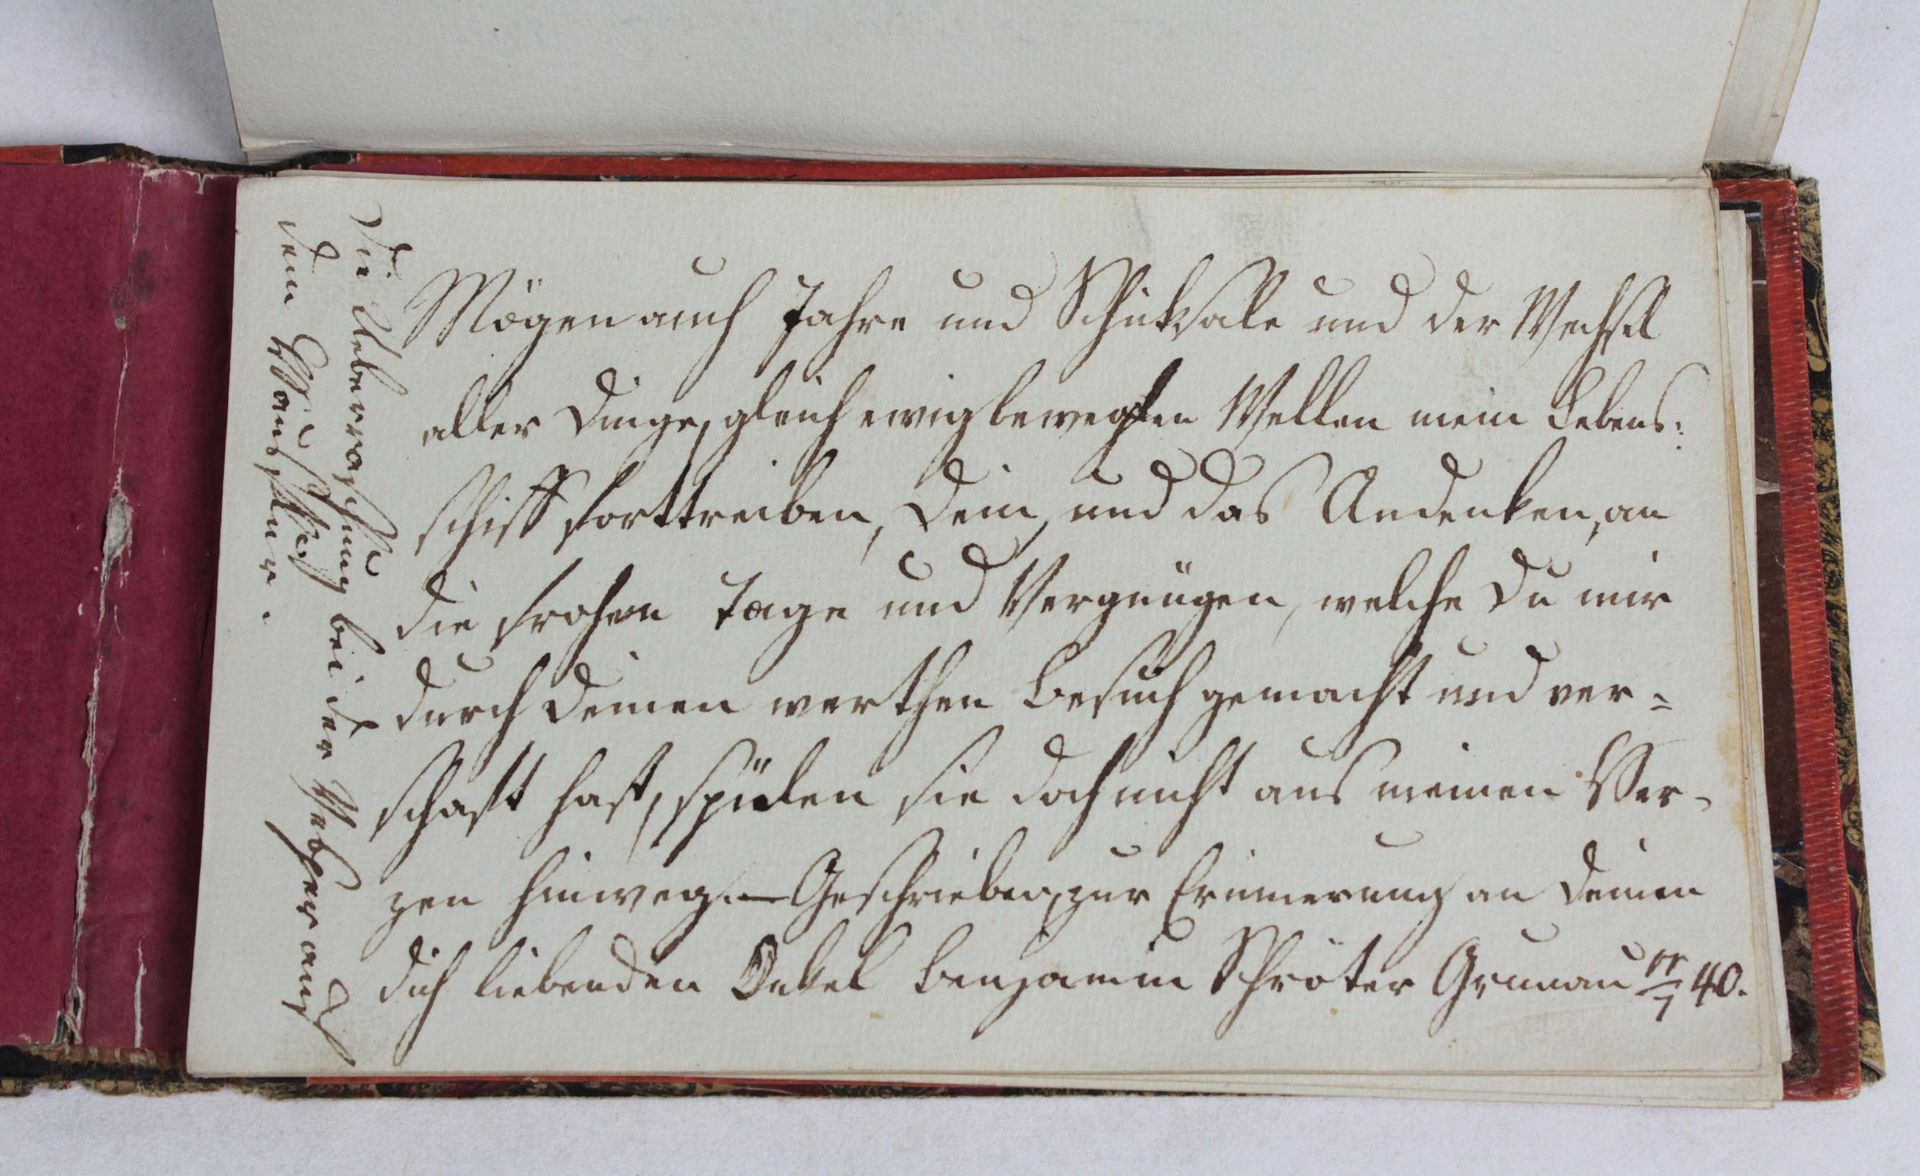 Mögen auch Jahre und Schiksale und der Wechsel
aller Dinge, gleich ewig bewegten Wellen mein Lebens:
schiff forttreiben, Dein, und das Andenken, an
die frohen Tage und Vergnügen, welche Du mir
durch Deinen werthen Besuch gemacht und ver=
schafft hast, spülen sie doch nicht aus meinen Her-
zen hinweg. — Geschrieben, zur Erinnerung an Deinen
dich liebenden Onkel Benjamin Schröter Grunau 7 40.
Die Ueberraschung bei der Weber auch
dem